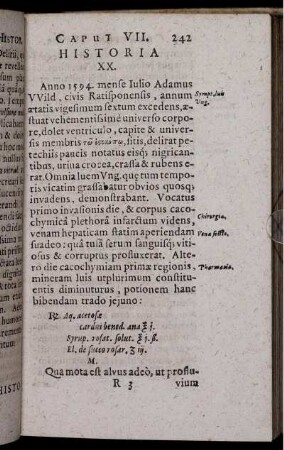 CAPUT VII. 242
HISTORIA
XX.
Anno 1594. mense Iulio Adamus
VVild, civis Ratisponensis, annum
ætatis vigesimum sextum excedens, æ-
stuat vehementissimè universo corpo-
re, dolet ventriculo, capite & univer-
sis membris
sitis, delirat pe-
techiis paucis notatus eisq́; nigrican-
tibus, urina crocea, crassa & rubens e-
rat. Omnia luem Vng. quę tum tempo-
ris vicatim grassabatur obvios quosq́;
invadens, demonstrabant. Vocatus
primo invasionis die, & corpus caco-
chymicâ plethorâ infarctum videns,
venam hepaticam statim aperiendam
suadeo: quâ tuiâ serum sanguisq́; viti-
osus & corruptus profluxerat. Alte-
ro die cacochymiam primæ regionis,
mineram luis utplurimum constitu-
entis diminuturus, potionem hanc
bibendam trado jejuno:
℞. Aq. acetosæ
cardui bened. ana ℥ j.
Syrup. rosat. solut. ℥ j. ß.
El. de succo rosar. ʒ iij.
M.
Qua mota est alvus adeò, ut proflu-
R 3 vium
Sympt. luis
Vng.
Chirurgia.
Vena sectio.
Pharmacia.
HISTOR.
HISTO